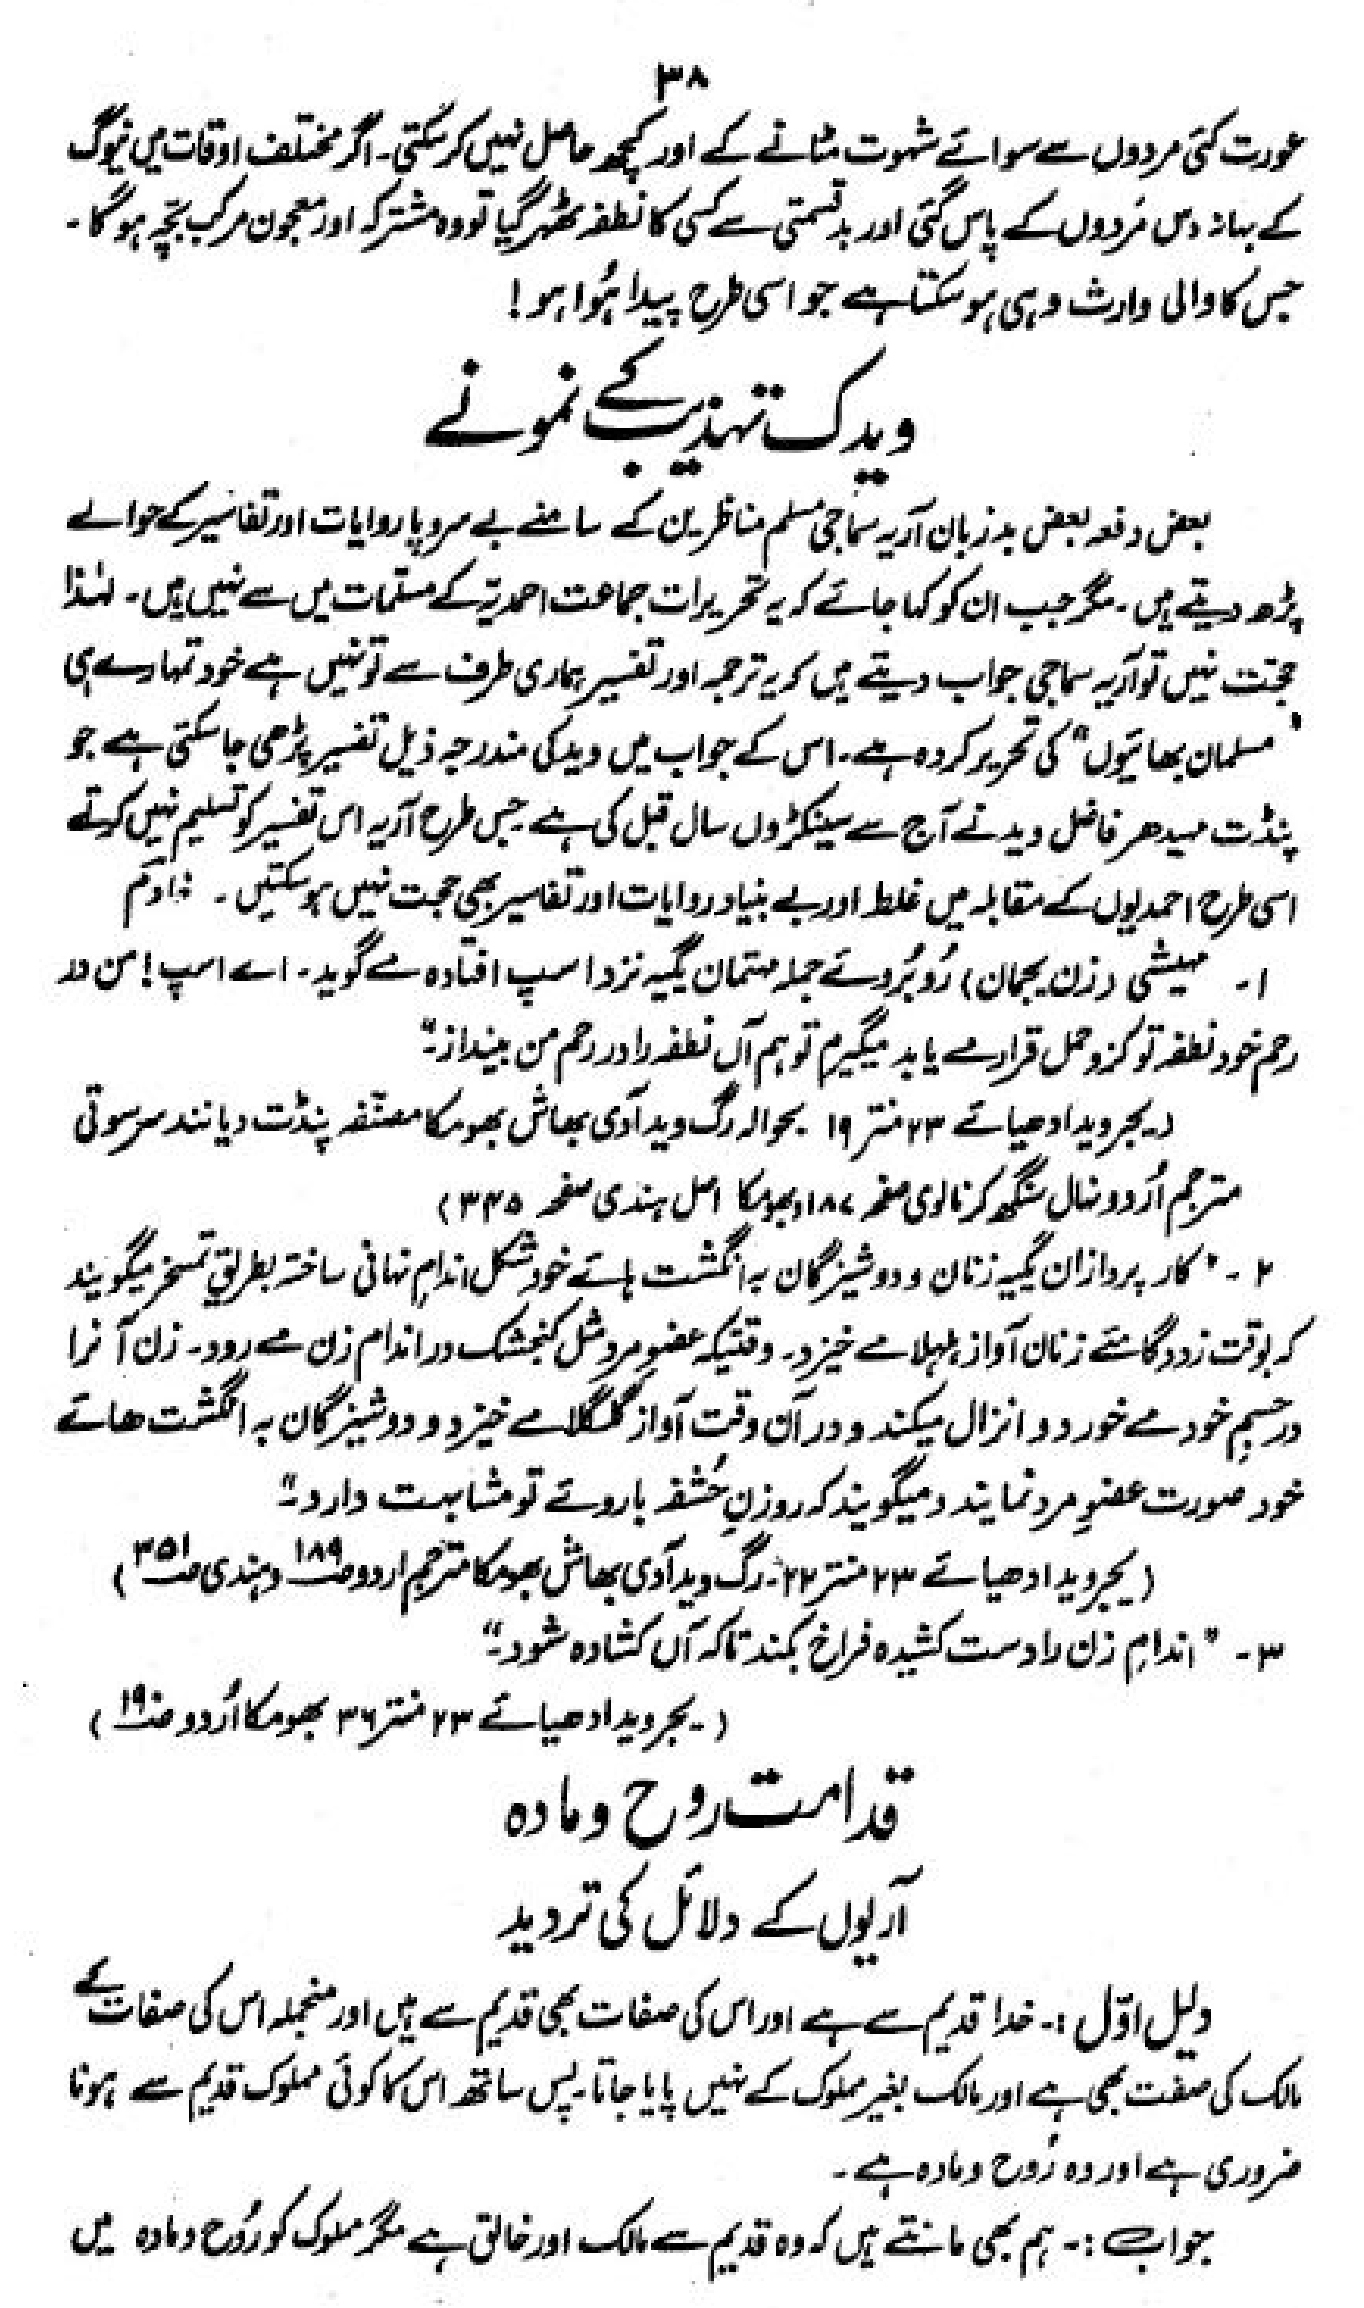 ۳۸
عورت کئی مردوں سے سوائے شہوت مٹانے کے اور کچھ حاصل نہیں کر سکتی۔ اگر مختلف اوقات میں نیوگ
کے بہانہ دس مَردوں کے پاس گئی اور بدقسمتی سے کسی کا نطفہ ٹھہر گیا تو وہ مشترکہ اور معجون مرکب بچّہ ہوگا۔
جس کا والی وارث وہی ہو سکتا ہے جو اسی طرح پیدا ہُوا ہو!
ویدک تہذیب کے نمونے
بعض دفعہ بعض بدزبان آریہ سماجی مسلم مناظرین کے سامنے بے سروپا روایات اور تفاسیر کے حوالے
پڑھ دیتے ہیں۔ مگر جب ان کو کہا جائے کہ یہ تحریرات جماعت احمدیّہ کے مسلّمات میں سے نہیں ہیں۔ لہٰذا
حجّت نہیں تو آریہ سماجی جواب دیتے ہیں کہ یہ ترجمہ اور تفسیر ہماری طرف سے تو نہیں ہے خود تمہارے ہی
"مسلمان بھائیوں" کی تحریر کردہ ہے۔ اس کے جواب میں وید کی مندرجہ ذیل تفسیر پڑھی جا سکتی ہے جو
پنڈت مہیدھر فاضل وید نے آج سے سینکڑوں سال قبل کی ہے جس طرح آریہ اس تفسیر کو تسلیم نہیں کرتے
اسی طرح احمدیوں کے مقابلہ میں غلط اور بے بنیاد روایات اور تفاسیر بھی حجت نہیں ہو سکتیں۔ خادم
۱۔ مہیشی (زن یجمان) رُوبُروئے جملہ مہتمان یگیہ نزد اسپ افتادہ مے گوید۔ اے اسپ! من در
رحم خود نطفہ تو کزو حمل قرار مے یابد میگیرم تو ہم آں نطفہ را در رحم من بینداز۔"
(۔یجروید ادھیائے ۲۳ منتر ۱۹ ۔بحوالہ رگ وید آدی بھاش بھومکا مصنّفہ پنڈت دیانند سرسوتی
مترجم اُردو نہال سنگھ کرنالوی صفحہ ۱۸۷ و بھومکا اصل ہندی صفحہ ۳۳۵)
۲۔ "کار پردازان یگیہ زنان و دوشیزگان بہ انگشت ہائے خود شکل اندامِ نہانی ساختہ بطریقِ تمسخر میگویند
کہ بوقت زود گامئے زنان آواز ہلہلا مے خیزد۔ وقتیکہ عضوِ مرد مثل کنجشک در اندام زن مے رود۔ زن آنرا
در جسمِ خود مے خورد و انزال میکند و در آن وقت آواز گلگلا مے خیزد و دوشیزگان بہ انگشت ھائے
خود صورت عضوِ مرد نمایند و میگویند کہ روزنِ حُشفہ باروئے تو مشابہت دارد۔"
(یجروید ادھیائے ۲۳ منتر ۲۲۔ رگ وید آدی بھاش بھومکا مترجم اردو صـ۱۸۹ و ہندی صـ۳۵۱)
۳۔ "اندامِ زن را دست کشیدہ فراخ بکند تاکہ آں کشادہ شود۔"
(۔یجروید ادھیائے ۲۳ منتر ۳۶ بھومکا اُردو صـ۱۹)
قدامت روح و مادہ
آریوں کے دلائل کی تردید
دلیل اوّل :۔ خدا قدیم سے ہے اور اس کی صفات بھی قدیم سے ہیں اور منجملہ اس کی صفات کے
مالک کی صفت بھی ہے اور مالک بغیر مملوک کے نہیں پایا جاتا۔ پس ساتھ اس کا کوئی مملوک قدیم سے ہونا
ضروری ہے اور وہ رُوح و مادہ ہے۔
جواب :۔ ہم بھی مانتے ہیں کہ وہ قدیم سے مالک اور خالق ہے مگر مملوک کو رُوح و مادہ میں